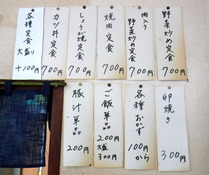 野菜炒め定食
700円
肉入り
野菜炒め定食
700円
焼肉定食
700円
しょうが焼定食
700円
カツ丼定食
700円
各種定食
大盛り
+100円
卵焼き
300円
各種おかず
100円から
ご飯単品
200円
大盛
300円
豚汁単品
200円